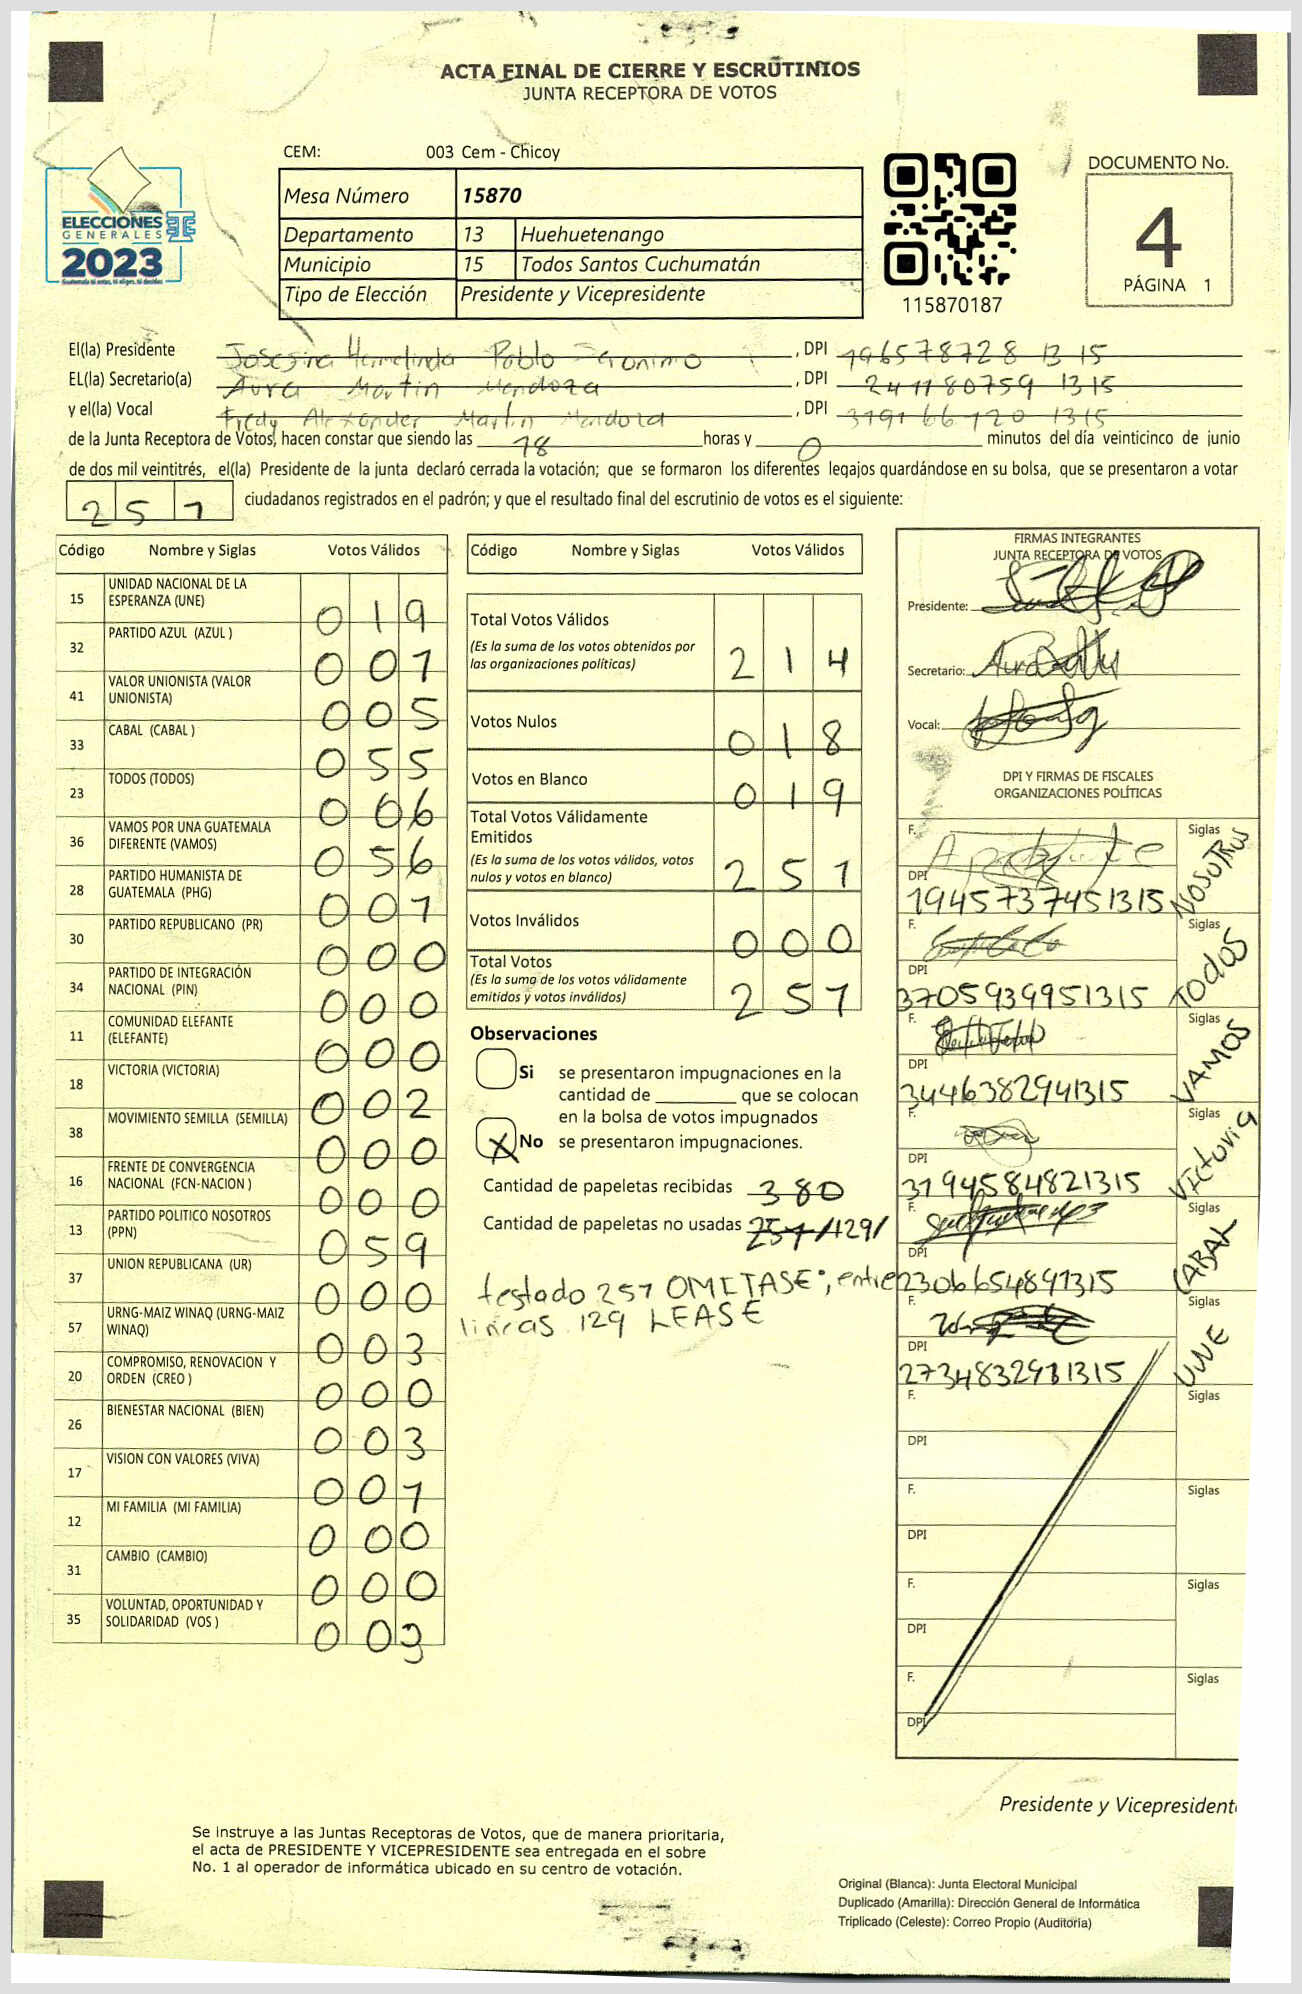 ACTA FINAL DE CIERRE Y ESCRUTINIOS
JUNTA RECEPTORA DE VOTOS
CEM: 003 Cem - Chicoy
DOCUMENTO No.
4
PÁGINA 1
ELECCIONES
GENERALES
2023
Mesa Número 15870
Departamento 13 Huehuetenango
Municipio 15 Todos Santos Cuchumatán
Tipo de Elección Presidente y Vicepresidente
115870187
El(la) Presidente Josefina Hermelinda Pablo Jeronimo, DPI 196578728 1315
EL(la) Secretario(a) Aura Martin Mendoza, DPI 241180759 1315
y el(la) Vocal Fredy Alexander Martin Mendoza, DPI 319166120 1315
de la Junta Receptora de Votos, hacen constar que siendo las 18 horas y 0 minutos del día veinticinco de junio
de dos mil veintitrés, el(la) Presidente de la junta declaró cerrada la votación; que se formaron los diferentes legajos quardándose en su bolsa, que se presentaron a votar
251 ciudadanos registrados en el padrón; y que el resultado final del escrutinio de votos es el siguiente:
Código Nombre y Siglas Votos Válidos
15 UNIDAD NACIONAL DE LA ESPERANZA (UNE) 019
32 PARTIDO AZUL (AZUL ) 001
41 VALOR UNIONISTA (VALOR UNIONISTA) 005
33 CABAL (CABAL ) 055
23 TODOS (TODOS) 006
36 VAMOS POR UNA GUATEMALA DIFERENTE (VAMOS) 056
28 PARTIDO HUMANISTA DE GUATEMALA (PHG) 001
30 PARTIDO REPUBLICANO (PR) 000
34 PARTIDO DE INTEGRACIÓN NACIONAL (PIN) 000
11 COMUNIDAD ELEFANTE (ELEFANTE) 000
18 VICTORIA (VICTORIA) 002
38 MOVIMIENTO SEMILLA (SEMILLA) 000
16 FRENTE DE CONVERGENCIA NACIONAL (FCN-NACION ) 000
13 PARTIDO POLITICO NOSOTROS (PPN) 059
37 UNION REPUBLICANA (UR) 000
57 URNG-MAIZ WINAQ (URNG-MAIZ WINAQ) 003
20 COMPROMISO, RENOVACION Y ORDEN (CREO ) 000
26 BIENESTAR NACIONAL (BIEN) 003
17 VISION CON VALORES (VIVA) 001
12 MI FAMILIA (MI FAMILIA) 000
31 CAMBIO (CAMBIO) 000
35 VOLUNTAD, OPORTUNIDAD Y SOLIDARIDAD (VOS ) 003
Código Nombre y Siglas Votos Válidos
Total Votos Válidos 214
(Es la suma de los votos obtenidos por
las organizaciones políticas)
Votos Nulos 018
Votos en Blanco 019
Total Votos Válidamente
Emitidos 251
(Es la suma de los votos válidos, votos
nulos y votos en blanco)
Votos Inválidos 000
Total Votos 251
(Es la suma de los votos válidamente
emitidos y votos inválidos)
Observaciones
Si se presentaron impugnaciones en la
cantidad de ________ que se colocan
en la bolsa de votos impugnados
X No se presentaron impugnaciones.
Cantidad de papeletas recibidas 380
Cantidad de papeletas no usadas 251 /129/
testado 251 OMITASE; entre
lineas 129 LEASE
FIRMAS INTEGRANTES
JUNTA RECEPTORA DE VOTOS
Presidente:
Secretario:
Vocal:
DPI Y FIRMAS DE FISCALES
ORGANIZACIONES POLÍTICAS
F. Siglas NOSOTROS
DPI 1945737451315
F. Siglas TODOS
DPI 3705939951315
F. Siglas VAMOS
DPI 3446382941315
F. Siglas Victoria
DPI 3194584821315
F. Siglas CABAL
DPI 2306654891315
F. Siglas UNE
DPI 2734832981315
F. Siglas
DPI
F. Siglas
DPI
F. Siglas
DPI
F. Siglas
DPI
Presidente y Vicepresident
Se instruye a las Juntas Receptoras de Votos, que de manera prioritaria,
el acta de PRESIDENTE Y VICEPRESIDENTE sea entregada en el sobre
No. 1 al operador de informática ubicado en su centro de votación.
Original (Blanca): Junta Electoral Municipal
Duplicado (Amarilla): Dirección General de Informática
Triplicado (Celeste): Correo Propio (Auditoría)